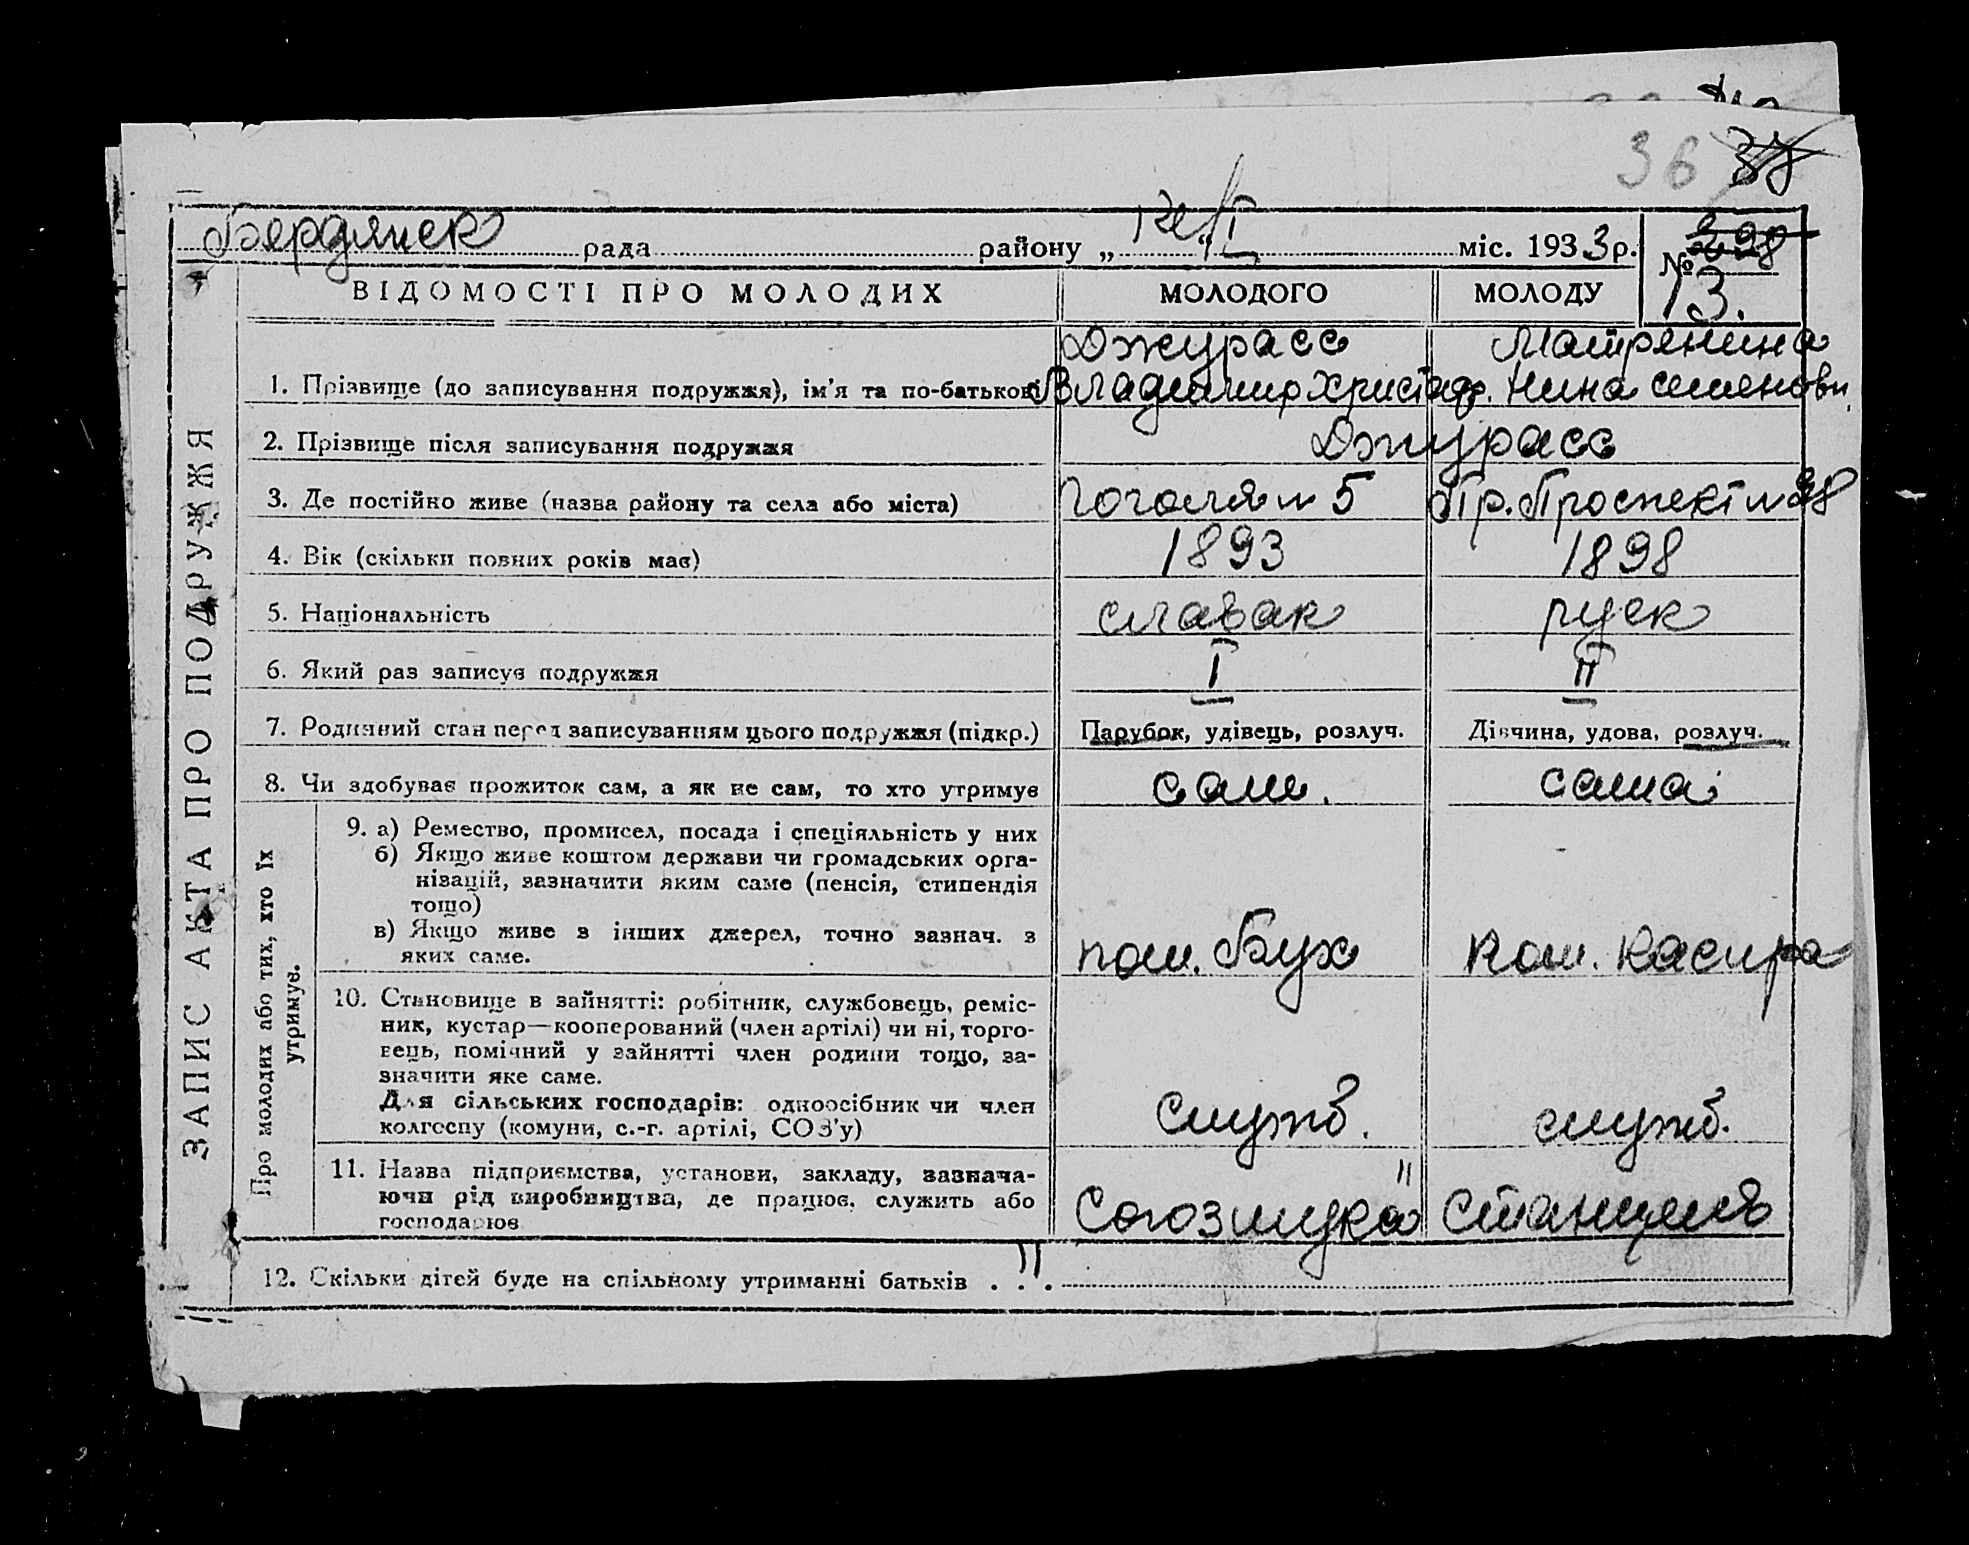 36 38
Бердянск рада района „ “ I міс. 1933 р.
№ 298
13.
ЗАПИС АКТА ПРО ПОДРУЖЖЯ
ВІДОМОСТІ ПРО МОЛОДИХ МОЛОДОГО МОЛОДУ
Джурасс Матренина
1. Прізвище (до записування подружжя), ім'я та по-батькові Владимир Христоф. Нина Семеновн.
2. Прізвище після записування подружжя Джурасс
3. Де постійно живе (назва району та села або міста) Гоголя № 5 Пр. Проспект № 98
4. Вік (скільки повних років має) 1893 1898
5. Національність славак руск
6. Який раз записує подружжя I II
7. Родинний стан перед записуванням цього подружжя (підкр.) Парубок, удівець, розлуч. Дівчина, удова, розлуч.
8. Чи здобуває прожиток сам, а як не сам, то хто утримує сам. сама
Про молодих або тих, хто їх утримує.
9. а) Ремество, промисел, посада і спеціяльність у них
б) Якщо живе коштом держави чи громадських орга-
нізацій, зазначити яким саме (пенсія, стипендія
тощо)
в) Якщо живе з інших джерел, точно зазнач. з
яких саме. пом. бух пом. касира
10. Становище в зайнятті: робітник, службовець, реміс-
ник, кустар—кооперований (член артілі) чи ні, торго-
вець, помічний у зайнятті член родини тощо, за-
значити яке саме.
Для сільських господарів: одноосібник чи член
колгоспу (комуни, с.-г. артілі, СОЗ'у) служб. служб.
11. Назва підприємства, установи, закладу, зазнача-
ючи рід виробництва, де працює, служить або
господарює Союзмука
12. Скільки дітей буде на спільному утриманні батьків . . .